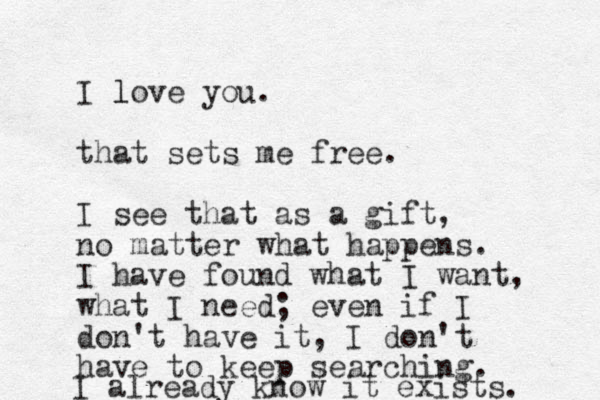 I love you.
that sets me free.
I see that as a gift,
no matter what happens.
I have found what I want,
what I need; even if I
don't have it, I don't
have to keep searching.
I already know it exists.